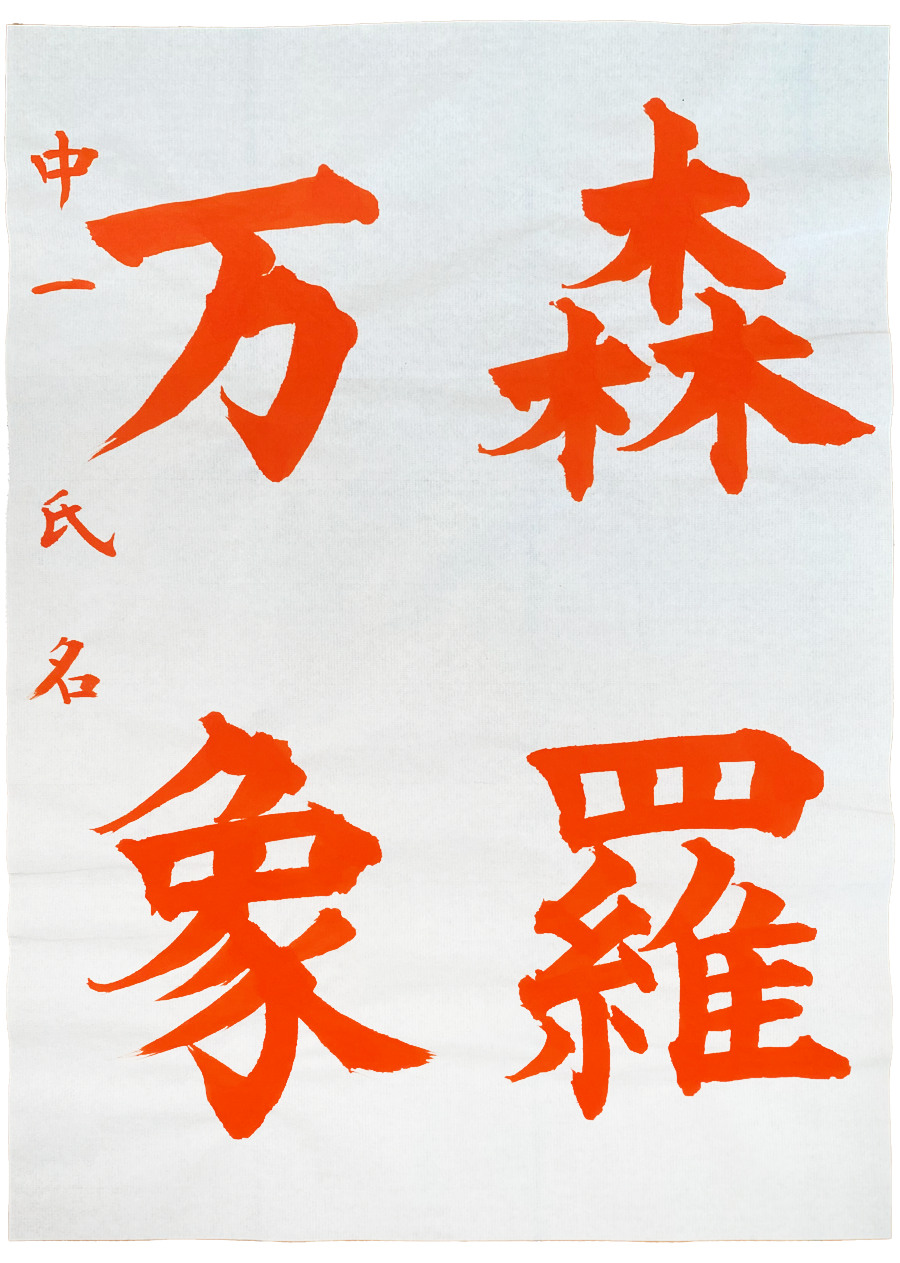 森羅
万象
中一 氏名